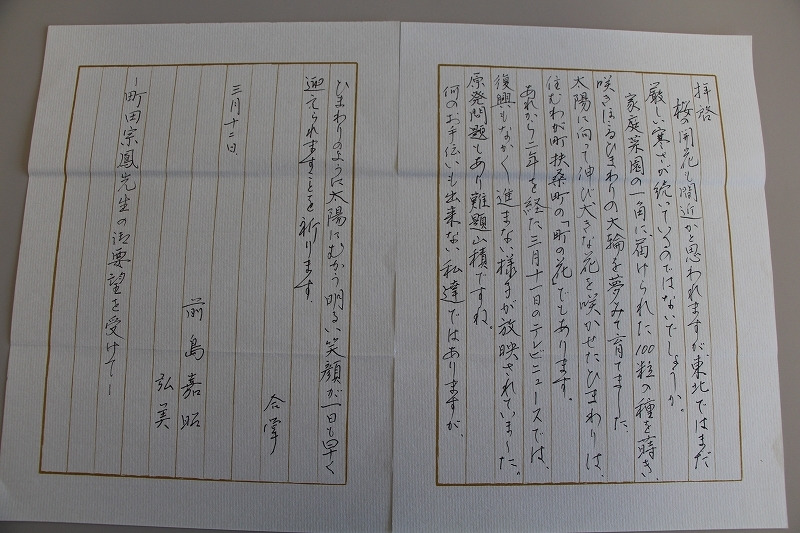 拝啓
桜の開花も間近かと思われますが、東北ではまだ
厳しい寒さが続いているのではないでしょうか。
家庭菜園の一角に、届けられた100粒の種を蒔き、
咲きほこるひまわりの大輪を夢みて育てました。
太陽に向って伸び大きな花を咲かせたひまわりは、
住むわが町扶桑町の「町の花」でもあります。
あれから二年を経た三月十一日のテレビニュースでは、
復興もなかなか進まない様子が放映されていました。
原発問題もあり難題山積ですね。
何のお手伝いも出来ない私達ではありますが、
ひまわりのように太陽にむかう明るい笑顔が一日も早く
迎えられますことを祈ります。
合掌
三月十二日
前島嘉昭
弘美
ー町田宗鳳先生の御要望を受けてー